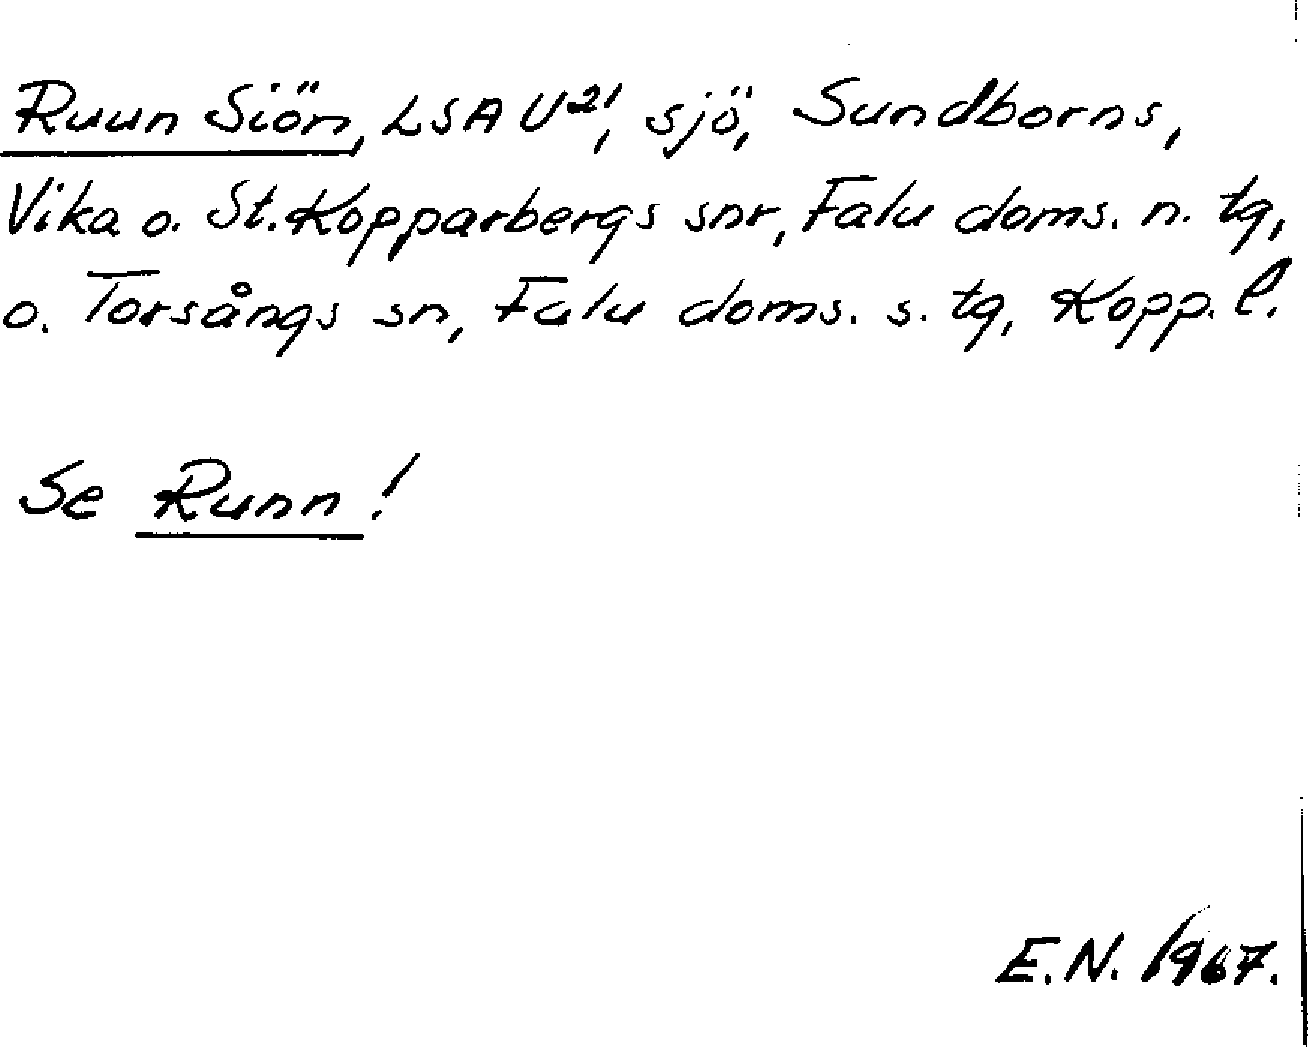 Ruun Siön, LSA U21, sjö, Sundborns,
Vika o. St. Kopparbergs snr, Falu doms. n. tg,
o. Torsångs sn, Falu doms. s. tg, Kopp. l.
Se Runn!
E.N. 1967.